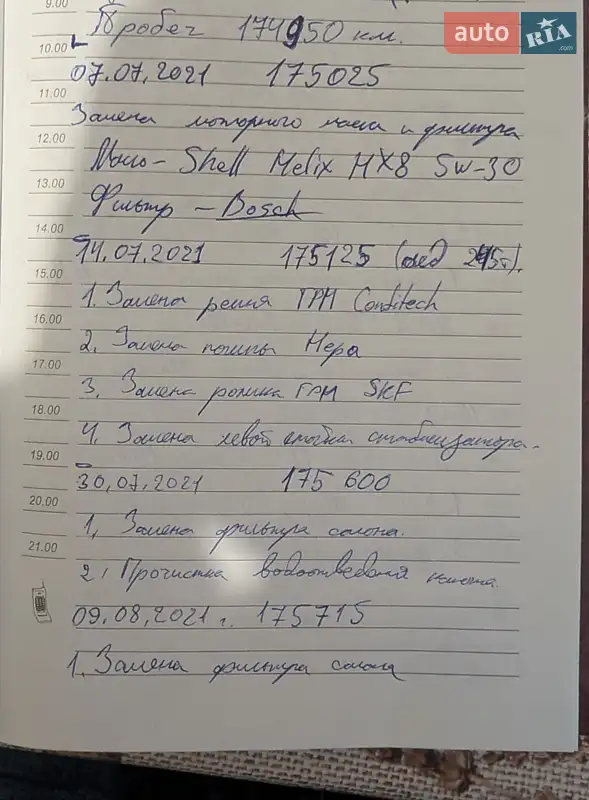 9.00
Пробег 174950 км.
auto RIA .com
10.00
07.07.2021 175025
11.00
Замена моторного масла и фильтра
12.00
Масло - Shell Helix HX8 5W-30
13.00
Фильтр - Bosch
14.00
14.07.2021 175125 (след 245т).
15.00
1. Замена ремня ГРМ Contitech
16.00
2. Замена помпы Hepa
17.00
3. Замена ролика ГРМ SKF
18.00
4. Замена левой стойки стабилизатора.
19.00
30.07.2021 175 600
20.00
1. Замена фильтра салона.
21.00
2. Прочистка водоотведения
09.08.2021 г. 175715
1. Замена фильтра салона